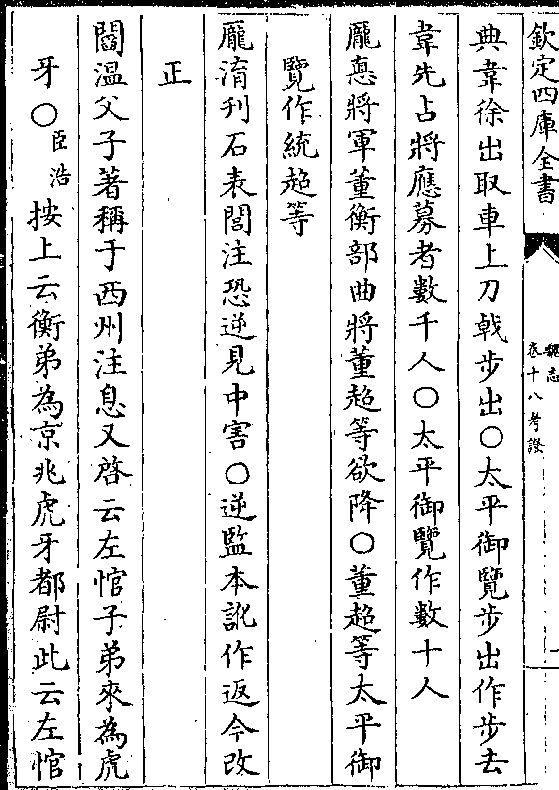 欽定四庫全書
魏志
卷十八考證
典韋徐出取車上刀戟步出○太平御覽步出作步去
韋先占將應募者數千人○太平御覽作數十人
龐悳將軍董衡部曲將董超等欲降○董超等太平御
覽作統超等
龐淯刋石表閭注恐逆見中害○逆監本訛作返今改
正
閻溫父子著稱于西州注息又啓云左悺子弟來為虎
牙○臣浩按上云衡弟為京兆虎牙都尉此云左悺